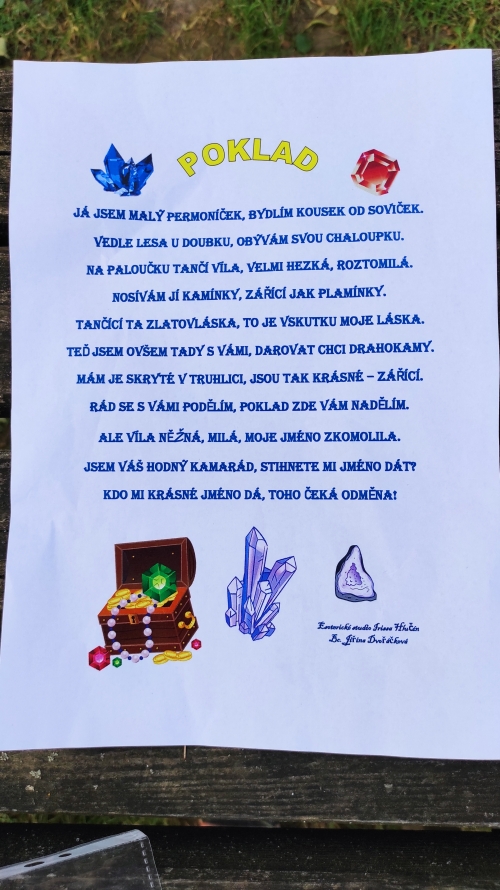 POKLAD
JÁ JSEM MALÝ PERMONÍČEK, BYDLÍM KOUSEK OD SOVIČEK.
VEDLE LESA U DOUBKU, OBÝVÁM SVOU CHALOUPKU.
NA PALOUČKU TANČÍ VÍLA, VELMI HEZKÁ, ROZTOMILÁ.
NOSÍVÁM JÍ KAMÍNKY, ZÁŘÍCÍ JAK PLAMÍNKY.
TANČÍCÍ TA ZLATOVLÁSKA, TO JE VSKUTKU MOJE LÁSKA.
TEĎ JSEM OVŠEM TADY S VÁMI, DAROVAT CHCI DRAHOKAMY.
MÁM JE SKRYTÉ V TRUHLICI, JSOU TAK KRÁSNÉ – ZÁŘÍCÍ.
RÁD SE S VÁMI PODĚLÍM, POKLAD ZDE VÁM NADĚLÍM.
ALE VÍLA NĚŽNÁ, MILÁ, MOJE JMÉNO ZKOMOLILA.
JSEM VÁŠ HODNÝ KAMARÁD, STIHNETE MI JMÉNO DÁT?
KDO MI KRÁSNÉ JMÉNO DÁ, TOHO ČEKÁ ODMĚNA!
Esoterické studio Irissa Hlučín
Bc. Jiřina Dvořáčková